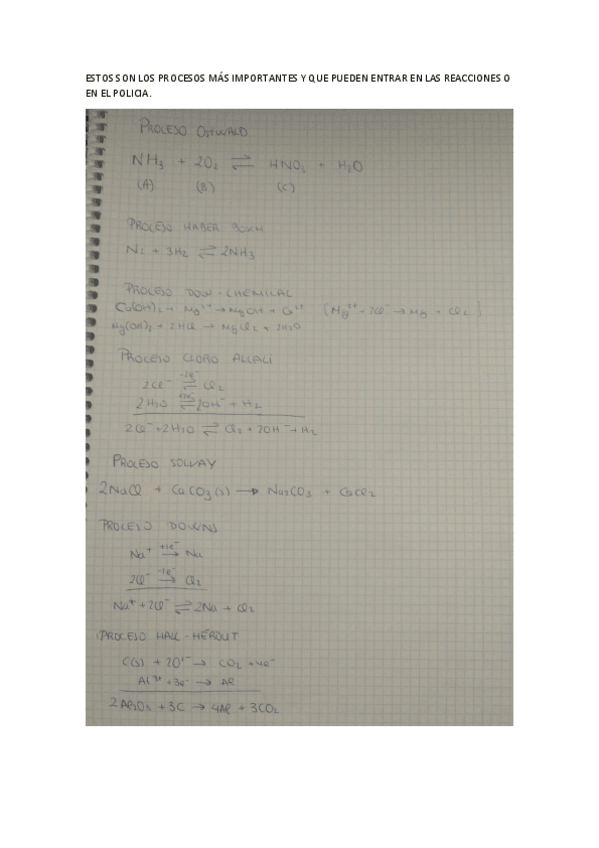 ESTOS SON LOS PROCESOS MÁS IMPORTANTES Y QUE PUEDEN ENTRAR EN LAS REACCIONES O
EN EL POLICIA.
PROCESO OSTWALD
NH3 + 2O2 ⇌ HNO3 + H2O
(A) (B) (C)
PROCESO HABER BOXH
N2 + 3H2 ⇌ 2NH3
PROCESO DOW-CHEMICAL
Ca(OH)2 + Mg2+ → MgOH + Ca2+ (Mg2+ + 2Cl- → Mg + Cl2)
Mg(OH)2 + 2HCl → MgCl2 + 2H2O
PROCESO CLORO ALCALÍ
2Cl- ⇌ Cl2
-2e-
2H2O ⇌ 2OH- + H2
2Cl- + 2H2O ⇌ Cl2 + 2OH- + H2
PROCESO SOLVAY
2NaCl + CaCO3(s) → Na2CO3 + CaCl2
PROCESO DOWNS
Na+ +1e- → Na
2Cl- -1e- → Cl2
Na+ + 2Cl- ⇌ 2Na + Cl2
PROCESO HALL-HÉROUT
C(s) + 2O2- → CO2 + 4e-
Al3+ + 3e- → Al
2Al2O3 + 3C → 4Al + 3CO2